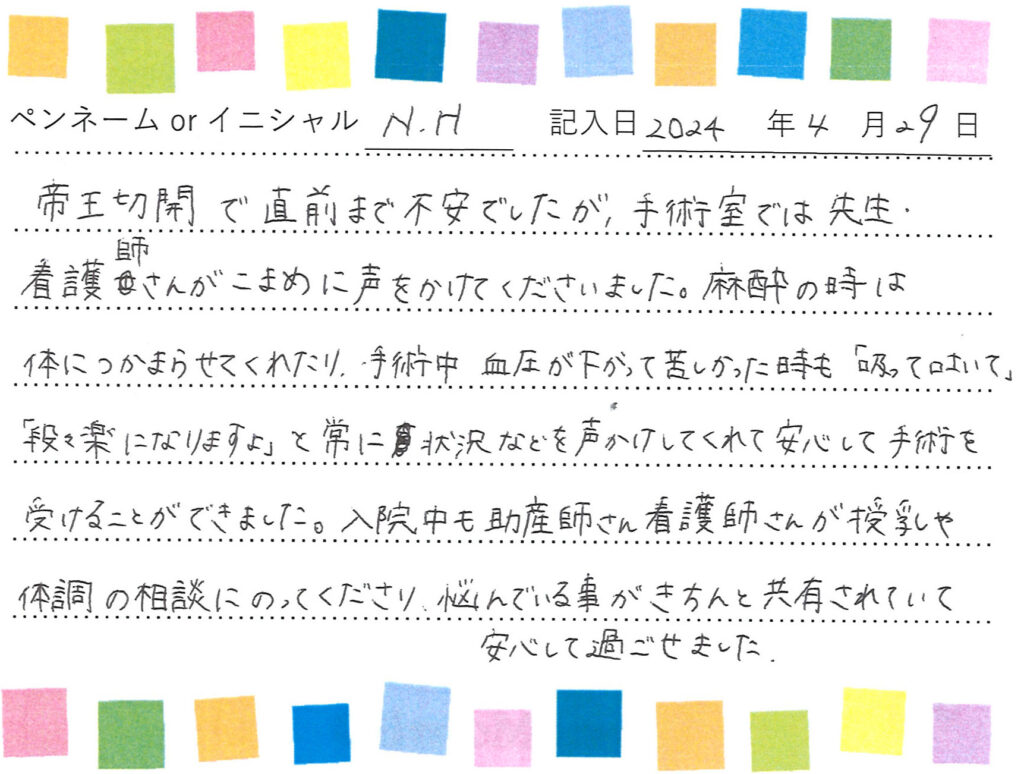 ペンネーム or イニシャル N.H 記入日 2024 年 4 月 29 日
帝王切開で直前まで不安でしたが、手術室では先生・
看護師さんがこまめに声をかけてくださいました。麻酔の時は
体につかまらせてくれたり、手術中 血圧が下がって苦しかった時も「吸って吐いて」
「段々楽になりますよ」と常に状況などを声かけしてくれて安心して手術を
受けることができました。入院中も助産師さん看護師さんが授乳や
体調の相談にのってくださり、悩んでいる事がきちんと共有されていて
安心して過ごせました.